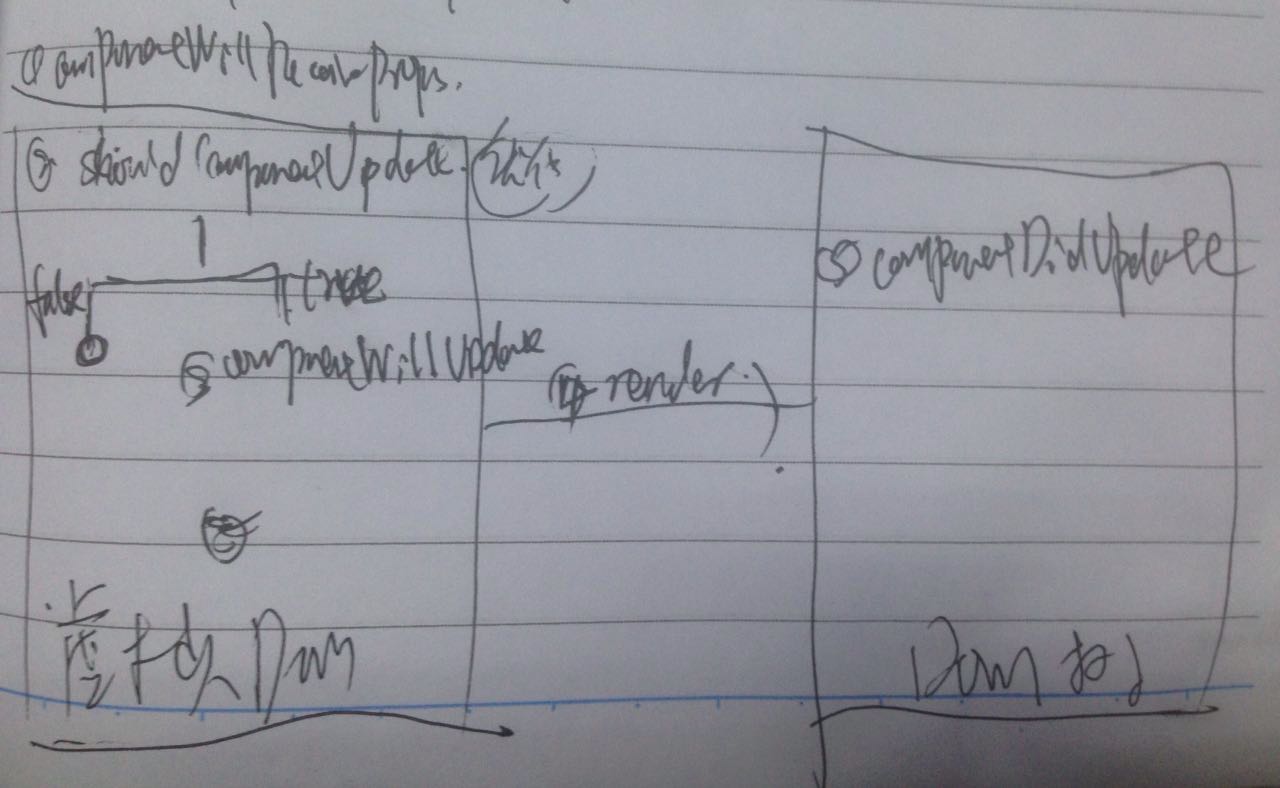 ① componentWillReceiveProps.
② shouldComponentUpdate.
false
true
③ componentWillUpdate
④ render
⑤ componentDidUpdate
Dom
Dom